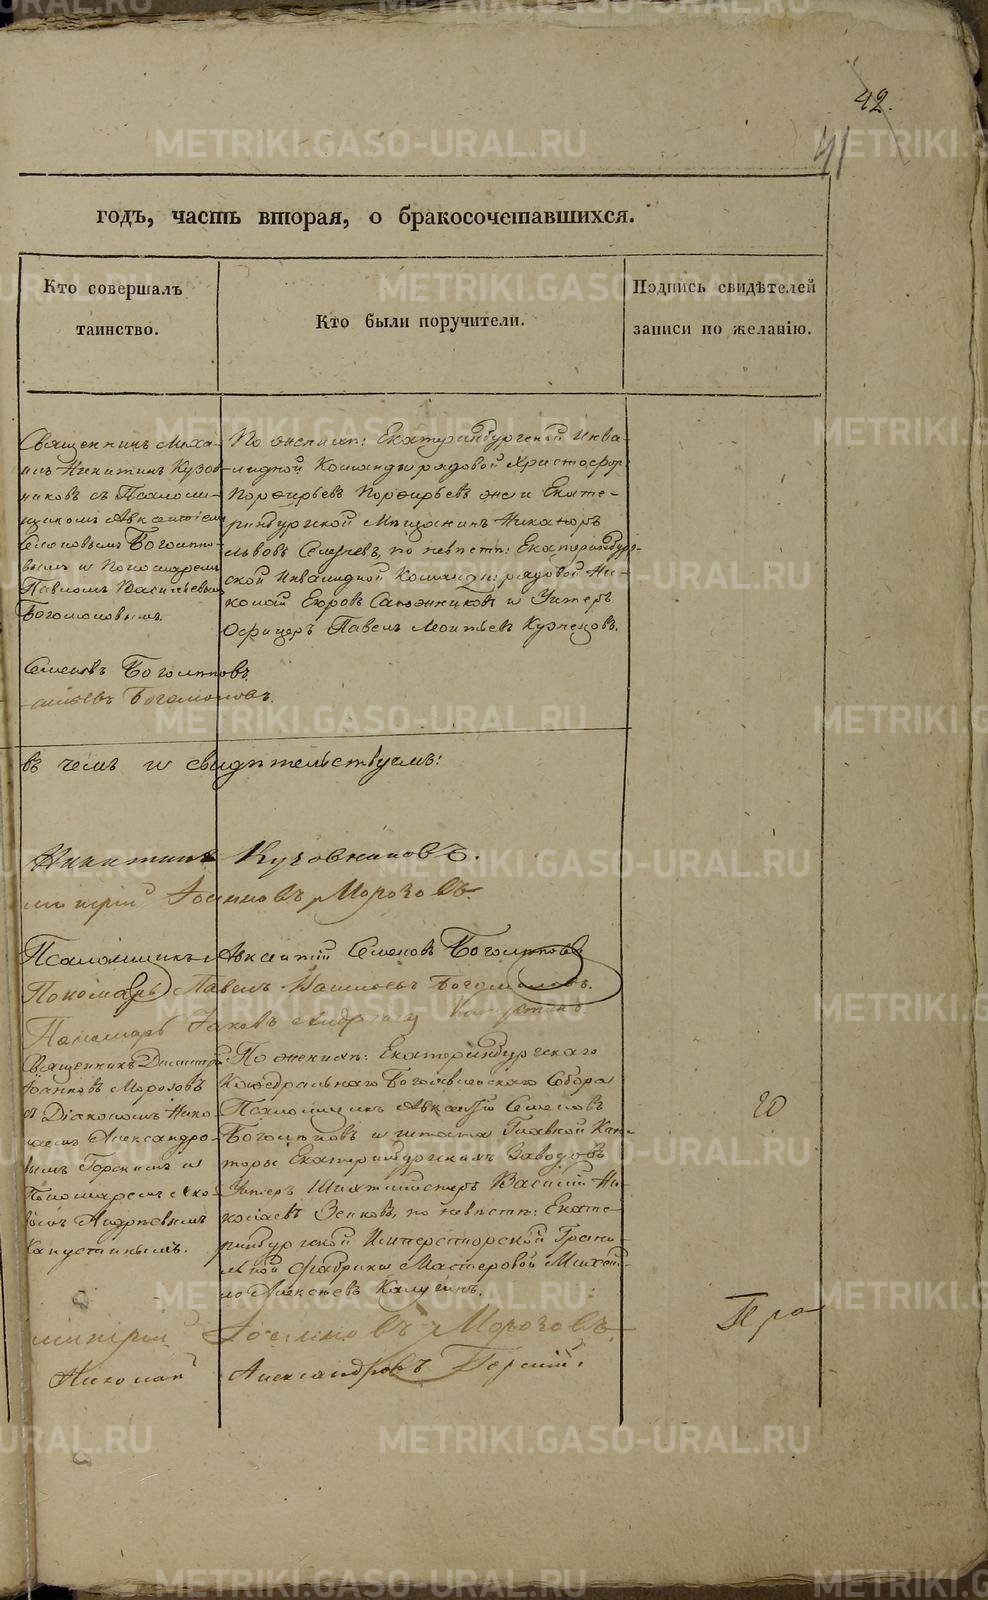 42.
41
годъ, часть вторая, о бракосочетавшихся.
Кто совершалъ
таинство.
Кто были поручители.
Подпись свидѣтелей
записи по желанію.
Священникъ Миха-
илъ Никитинъ Кузов-
никовъ съ Псаломщикомъ
Авксентіемъ
Семеновымъ Боголѣпо-
вымъ и Пономаремъ
Павломъ Васильевымъ
Богомоловымъ.
По женихѣ: Екатеринбургской Инва-
лидной Команды рядовой Христофоръ
Порфирьевъ Порфирьевъ же и Екате-
ринбургской Мѣщанинъ Никаноръ
Львовъ по невѣстѣ: Екатеринбург-
ской Инвалидной Команды: рядовой Ни-
колай Сапожниковъ и Унтеръ
Офицеръ Павелъ Леонтьевъ Кузнецовъ.
Семеновъ Боголѣповъ
Богомоловъ.
въ чемъ и свидѣтельствуемъ:
Никитинъ Кузовниковъ.
Димитрій Іоанновъ Морозовъ.
Псаломщикъ Авксентій Семеновъ Боголѣповъ
Пономарь Павелъ Васильевъ Богомоловъ.
Пономарь Іаковъ Андреевъ Капустинъ
Священникъ Димитрій
Іоанновъ Морозовъ
съ Діакономъ Нико-
лаемъ Александро-
вымъ Горскимъ и
Пономаремъ Іако-
вомъ Андрѣевымъ
Капустинымъ.
По женихѣ: Екатеринбургскаго
Кафедральнаго Богоявленскаго Собора
Псаломщикъ Авксентій Семеновъ
Боголѣповъ и штата Главной Кон-
торы Екатеринбургскихъ Заводовъ
Унтеръ Шихтмейстеръ Василій Ни-
колаевъ Зенковъ, по невѣстѣ: Екате-
ринбургской Императорской Грани-
льной фабрики Мастеровой Михай-
ло Алексѣевъ Калугинъ.
20
Димитрій Іоанновъ Морозовъ.
Николай Александровъ Горскій.
METRIKI.GASO-URAL.RU